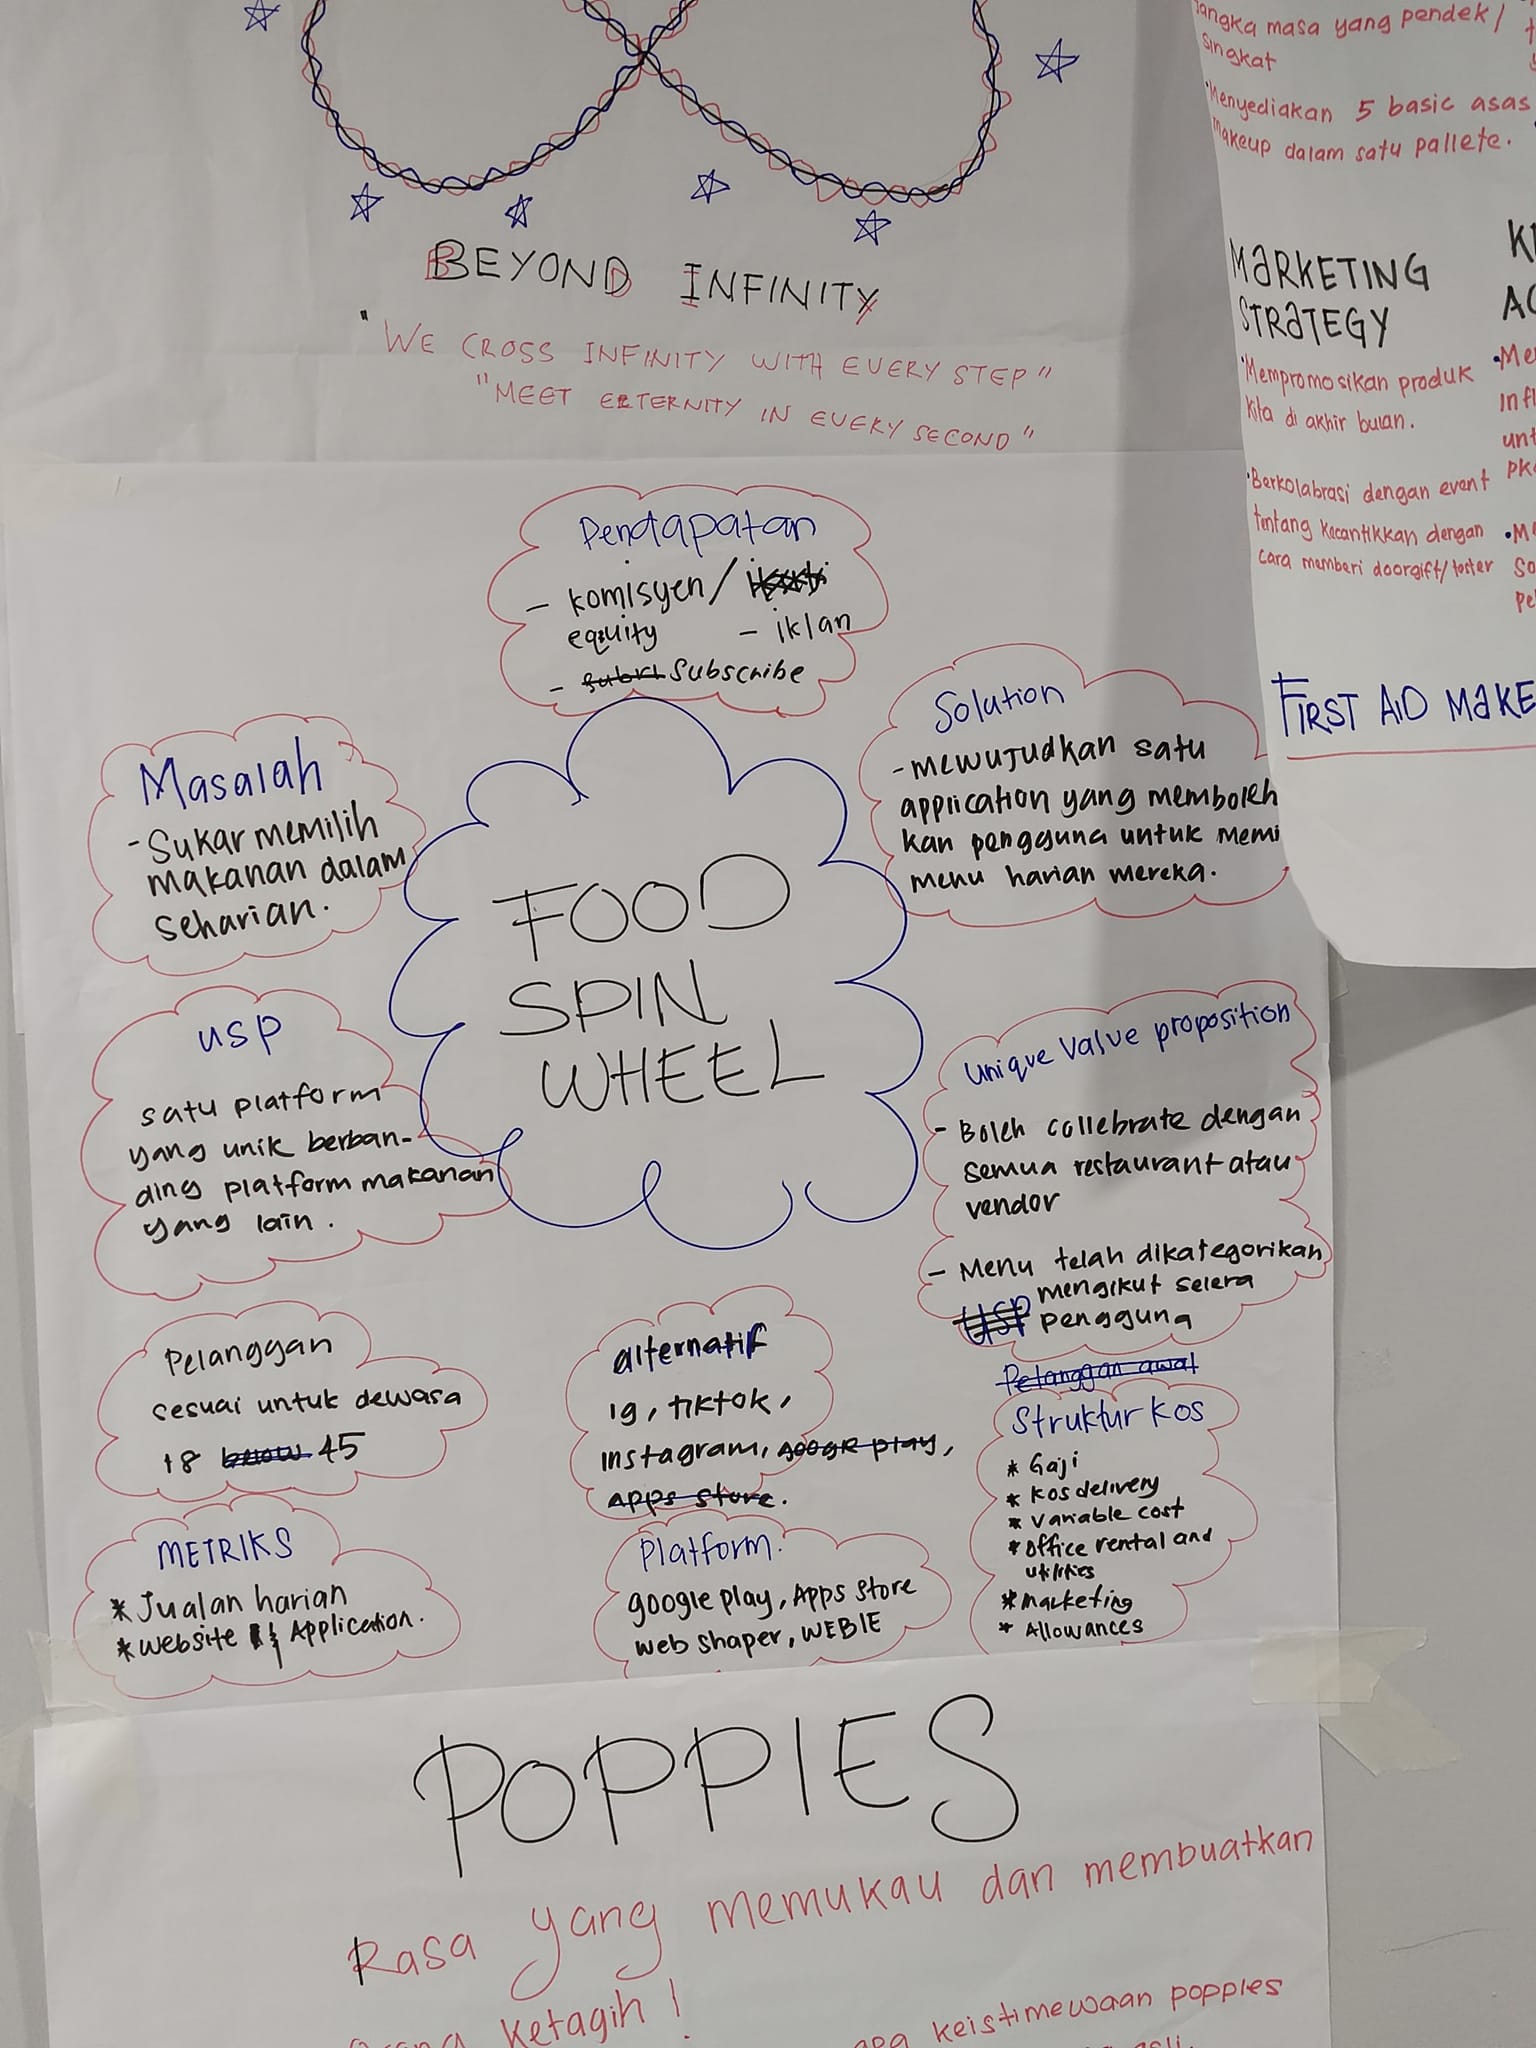 BEYOND INFINITY
"WE CROSS INFINITY WITH EVERY STEP"
"MEET ETERNITY IN EVERY SECOND"
jangka masa yang pendek/
singkat
• Menyediakan 5 basic asas
makeup dalam satu pallete.
MARKETING
STRATEGY
• Mempromosikan produk
kita di akhir bulan.
• Berkolabrasi dengan event
tentang kecantikkan dengan
cara memberi doorgift/
FIRST AID MAKE
Pendapatan
- komisyen/
equity - iklan
- Subscribe
Solution
- mewujudkan satu
application yang memboleh
kan pengguna untuk memi
menu harian mereka.
Masalah
- Sukar memilih
makanan dalam
seharian.
FOOD
SPIN
WHEEL
USP
satu platform
yang unik berban-
ding platform makanan
yang lain.
Unique Value proposition
- Boleh collebrate dengan
semua restaurant atau
vendor
- Menu telah dikategorikan
mengikut selera
USP pengguna
Pelanggan awal
Pelanggan
sesuai untuk dewasa
18 below 45
alternatif
ig, tiktok,
instagram, google play,
apps store.
Struktur kos
* Gaji
* Kos delivery
* Variable cost
* Office rental and
utilities
* Marketing
* Allowances
METRIKS
* Jualan harian
* Website & Application.
Platform:
google play, Apps store
web shaper, WEBIE
POPPIES
Rasa yang memukau dan membuatkan
ketagih!
keistimewaan poppies